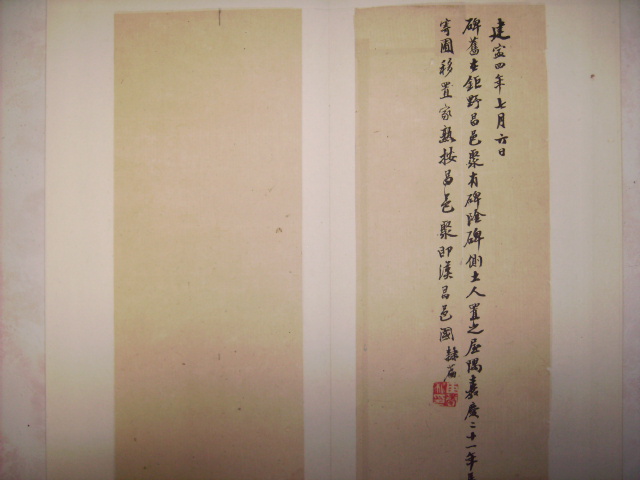 建寍四年七月六日
碑舊在鉅野昌邑聚有碑陰碑側土人置之屋隅嘉慶二十一年
寄圃移置家塾按昌邑聚即漢昌邑國隸篇